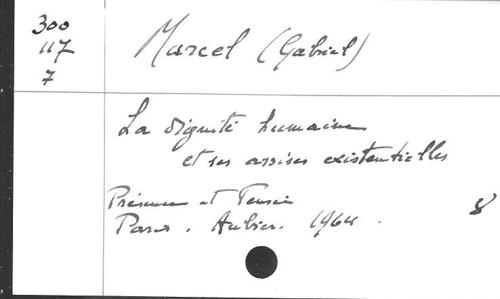 300
117
7
Marcel (Gabriel)
La dignité humaine
et ses assises existentielles
Présence et Pensée
Paris. Aubier. 1964.
8